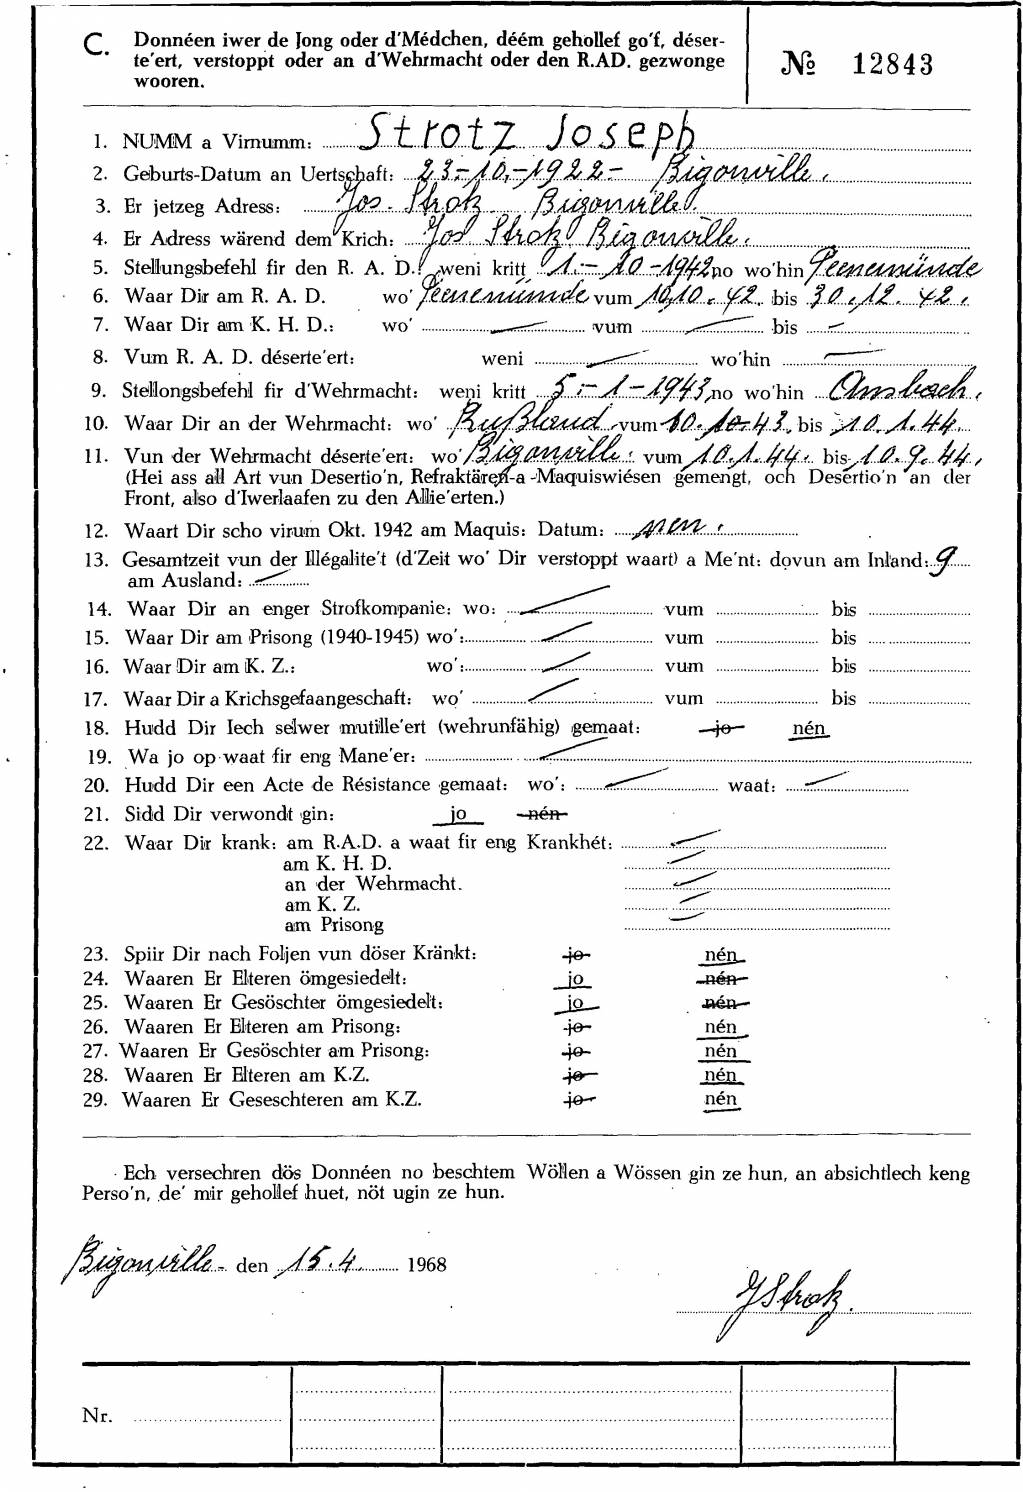 C. Donnéen iwer de Jong oder d'Médchen, déém gehollef go'f, déser-
te'ert, verstoppt oder an d'Wehrmacht oder den R.AD. gezwonge
wooren.
№ 12843
1. NUMM a Virnumm: Strotz Joseph
2. Geburts-Datum an Uertschaft: 23.-10.-1922- Bigonville.
3. Er jetzeg Adress: Jos. Strotz Bigonville.
4. Er Adress wärend dem Krich: Jos Strotz Bigonville.
5. Stellungsbefehl fir den R. A. D.: weni kritt 1.-10-1942 no wo'hin Peenemünde
6. Waar Dir am R. A. D. wo' Peenemünde vum 10.10.42. bis 30.12.42.
7. Waar Dir am K. H. D.: wo' — vum — bis —
8. Vum R. A. D. déserte'ert: weni — wo'hin —
9. Stellongsbefehl fir d'Wehrmacht: weni kritt 5.-1-1943, no wo'hin Ansbach.
10. Waar Dir an der Wehrmacht: wo' Rußland vum 10.10.43. bis 10.1.44.
11. Vun der Wehrmacht déserte'ert: wo' Bigonville. vum 10.1.44. bis 10.9.44.
(Hei ass all Art vun Desertio'n, Refraktären-a-Maquiswiésen gemengt, och Desertio'n an der
Front, also d'Iwerlaafen zu den Allie'erten.)
12. Waart Dir scho virum Okt. 1942 am Maquis: Datum: nen.
13. Gesamtzeit vun der Illégalite't (d'Zeit wo' Dir verstoppt waart) a Me'nt: dovun am Inland: 9
am Ausland: —
14. Waar Dir an enger Strofkompanie: wo: — vum bis
15. Waar Dir am Prisong (1940-1945) wo': — vum bis
16. Waar Dir am K. Z.: wo': — vum bis
17. Waar Dir a Krichsgefaangeschaft: wo' — vum bis
18. Hudd Dir Iech selwer mutille'ert (wehrunfähig) gemaat: jo nén
19. Wa jo op waat fir eng Mane'er: —
20. Hudd Dir een Acte de Résistance gemaat: wo': — waat: —
21. Sidd Dir verwondt gin: jo nén
22. Waar Dir krank: am R.A.D. a waat fir eng Krankhét: —
am K. H. D. —
an der Wehrmacht. —
am K. Z. —
am Prisong —
23. Spiir Dir nach Foljen vun döser Kränkt: jo nén
24. Waaren Er Elteren ömgesiedelt: jo nén
25. Waaren Er Gesöschter ömgesiedelt: jo nén
26. Waaren Er Elteren am Prisong: jo nén
27. Waaren Er Gesöschter am Prisong: jo nén
28. Waaren Er Elteren am K.Z. jo nén
29. Waaren Er Geseschteren am K.Z. jo nén
Ech versechren dös Donnéen no beschtem Wöllen a Wössen gin ze hun, an absichtlech keng
Perso'n, de' mir gehollef huet, nöt ugin ze hun.
Bigonville - den 15.4. 1968
J Strotz.
Nr.